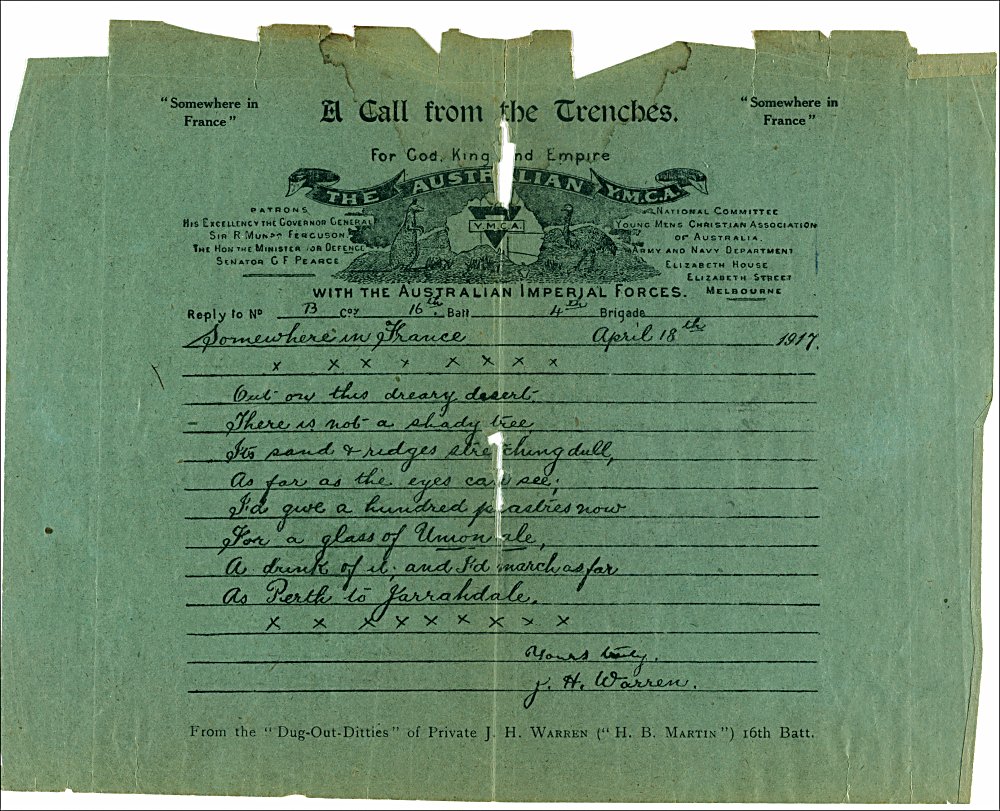 "Somewhere in
France"
A Call from the Trenches.
"Somewhere in
France"
For God, King and Empire
THE AUSTRALIAN Y.M.C.A.
PATRONS
HIS EXCELLENCY THE GOVERNOR GENERAL
SIR R MUNRO FERGUSON.
THE HON THE MINISTER FOR DEFENCE
SENATOR G F PEARCE
Y.M.C.A.
NATIONAL COMMITTEE
YOUNG MENS CHRISTIAN ASSOCIATION
OF AUSTRALIA.
ARMY AND NAVY DEPARTMENT
ELIZABETH HOUSE
ELIZABETH STREET
MELBOURNE
WITH THE AUSTRALIAN IMPERIAL FORCES.
Reply to No B Coy 16th Batt 4th Brigade
Somewhere in France April 18th 1917.
x x x x x x x x
Out on this dreary desert.
There is not a shady tree
It's sand & ridges stretching dull,
As far as the eyes can see;
I'd give a hundred piastres now
For a glass of Union ale,
A drink of it; and I'd march as far
As Perth to Jarrahdale.
x x x x x x x x x
Yours truly.
J. H. Warren.
From the "Dug-Out-Ditties" of Private J. H. WARREN ("H. B. MARTIN") 16th Batt.